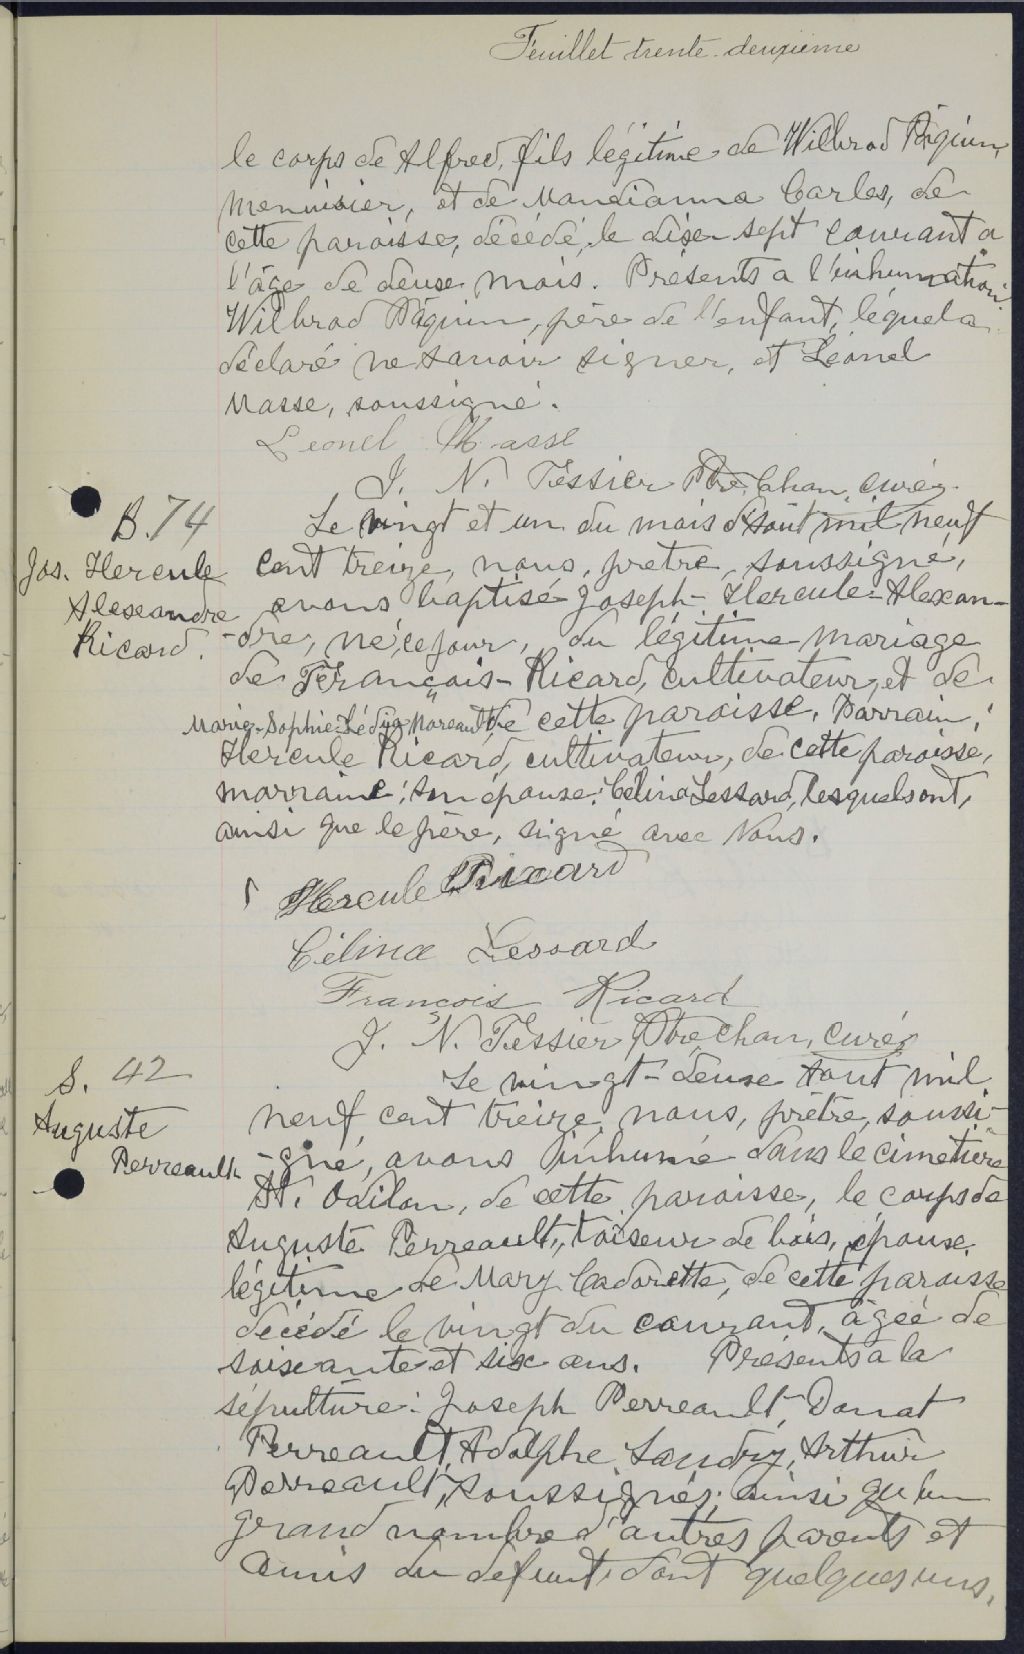 Feuillet trente-deuxième
le corps de Alfred, fils légitime de Wilbrod Pâquin,
menuisier, et de Mandianna Carles, de
cette paroisse, décédé, le dix-sept courant a
l'âge de deux mois. Présents a l'inhumation
Wilbrod Pâquin, père de l'enfant, lequel a
déclaré ne savoir signer, et Léonel
Masse, soussigné.
Leonel Masse
J. N. Tessier Ptre Chan. curé
B. 74
Jos. Hercule
Alexandre
Ricard.
Le vingt et un du mois d'Août mil neuf
cent treize, nous, prêtre, soussigné,
avons baptisé Joseph-Hercule-Alexan-
-dre, né, ce jour, du légitime mariage
de François-Ricard, cultivateur, et de
Marie-Sophie-Lédya Moreault, de cette paroisse. Parrain,
Hercule Ricard, cultivateur, de cette paroisse,
marraine, son épouse, Célina Lessard, lesquels ont,
ainsi que le père, signé avec Nous.
Hercule Ricard
Célina Lessard
François Ricard
J. N. Tessier Ptre Chan, curé
S. 42
Auguste
Perreault
Le vingt-deux Août mil
neuf cent treize, nous, prêtre, soussi-
-gné, avons inhumé dans le cimetière
St. Odilon, de cette paroisse, le corps de
Auguste Perreault, toiseur de bois, épouse
légitime de Mary Cadorette, de cette paroisse
décédé le vingt du courant, âgée de
soixante et six ans. Présents a la
sépulture: Joseph Perreault, Donat
Perreault, Adolphe Landry, Arthur
Perreault, soussignés, ainsi qu'un
grand nombre d'autres parents et
amis du defunt, dont quelques uns,